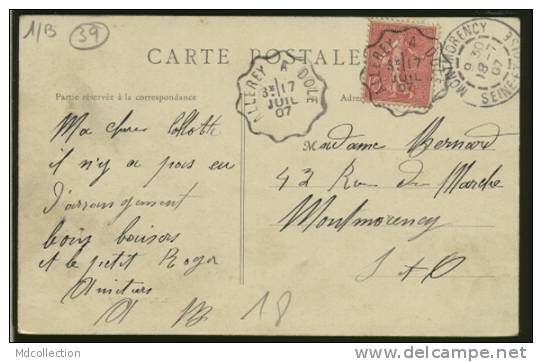 1/B
39
CARTE POSTALE
Partie réservée à la correspondance
Adres
ALLEREY A DOLE
3E 17
JUIL
07
ALLEREY A DOLE
3E 17
JUIL
07
MONTMORENCY
9 30
18 - 7
07
SEINE-ET-OISE
Ma chère
il n'y a pas eu
d'arrangement
bons baisers
et le petit Roger
Amitiés
Madame Bernard
42 Rue du Marche
Montmorency
S + O
18
Mdcollection
www.delcampe.net